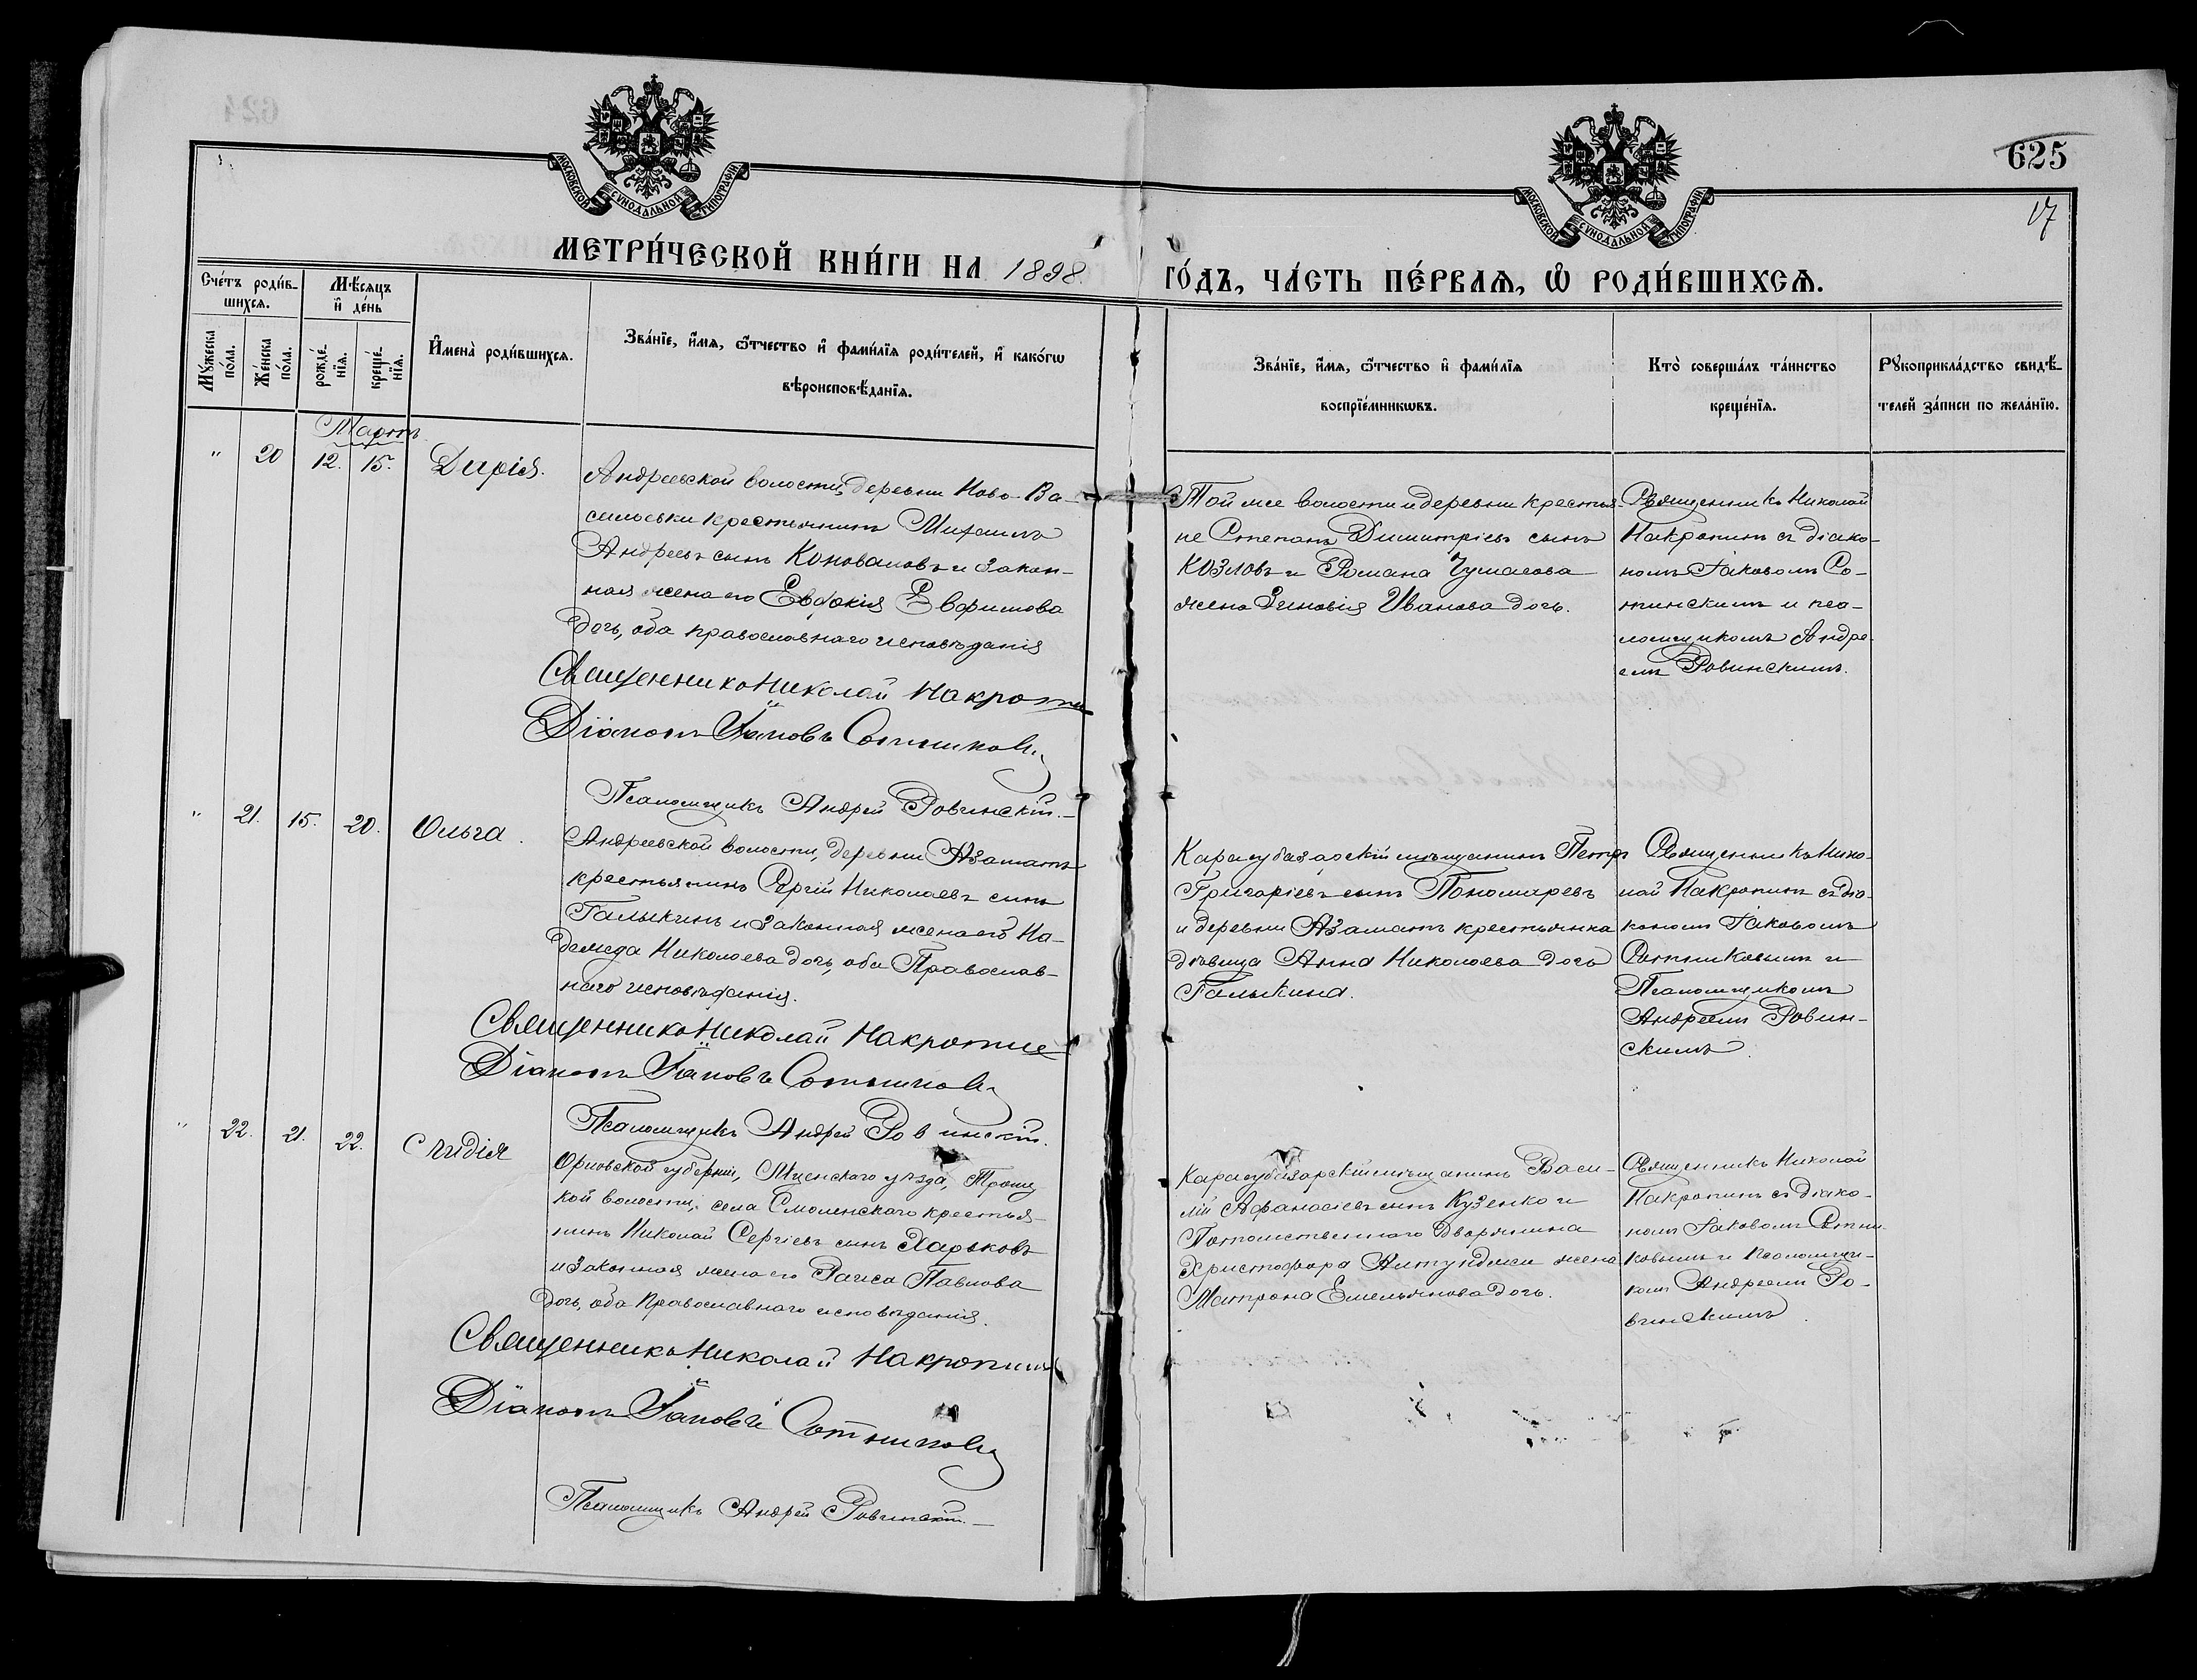 625
17
МОСКОВСКОЙ СѴНОДАЛЬНОЙ ТИПОГРАФІИ
МОСКОВСКОЙ СѴНОДАЛЬНОЙ ТИПОГРАФІИ
МЕТРИ́ЧЕСКОЙ КНИ́ГИ НА 1898
ГО́ДЪ, ЧА́СТЬ ПЕ́РВАѦ, Ѡ҆ РОДИ́ВШИХСѦ.
Сче́тъ роди́в-
шихсѧ.
Мꙋ́жеска по́ла.
Же́нска по́ла.
Мѣ́сяцъ и҆ де́нь
рожде́-нїѧ.
креще́-нїѧ.
И҆мена̀ роди́вшихсѧ.
Зва́нїе, и҆́мѧ, ѻ҆́тчество и҆ фами́лїѧ роди́телей, и҆ како́гѡ
вѣроисповѣ́данїѧ.
Зва́нїе, и҆́мѧ, ѻ҆́тчество и҆ фами́лїѧ
воспрїе́мникѡвъ.
Кто̀ соверша́лъ та́инство
креще́нїѧ.
Рꙋкоприкла́дство свидѣ́-
телей за́писи по жела́нїю.
Мартъ
" 20 12. 15. Дарія.
Андреевской волости, деревни Ново-Ва-
сильевки крестьянинъ Михаилъ
Андреевъ сынъ Коноваловъ и закон-
ная жена его Евдокія Евфимова
дочь, оба православнаго исповѣданія
Священникъ Николай Накропинъ
Діаконъ Іаковъ Сотниковъ
Псаломщикъ Андрей Ровинскій.
Той же волости и деревни крестья-
не Степанъ Димитріевъ сынъ
Козловъ и Романа Чумасова
жена Зиновія Иванова дочь.
Священникъ Николай
Накропинъ съ діако-
номъ Іаковомъ Со-
тинскимъ и пса-
ломщикомъ Андре-
емъ Ровинскимъ.
" 21. 15. 20. Ольга.
Андреевской волости, деревни Азаматъ
крестьянинъ Сергій Николаевъ сынъ
Галыкинъ и законная жена его На-
дежда Николаева дочь, оба Православ-
наго исповѣданія.
Священникъ Николай Накропинъ
Діаконъ Іаковъ Сотниковъ
Псаломщикъ Андрей Ровинскій.
Карасубазарскій мѣщанинъ Петръ
Григоріевъ сынъ Пономаревъ
и деревни Азаматъ крестьянка
дѣвица Анна Николаева дочь
Галыкина.
Священникъ Нико-
лай Накропинъ съ діа-
кономъ Іаковомъ
Сотниковымъ и
Псаломщикомъ
Андреемъ Ровин-
скимъ.
" 22. 21. 22. Лидія
Орловской губерніи, Мценскаго уѣзда, Троиц
кой волости, села Смоленскаго крестья-
нинъ Николай Сергіевъ сынъ Харьковъ
и законная жена его Раиса Павлова
дочь, оба Православнаго исповѣданія.
Священникъ Николай Накропинъ
Діаконъ Іаковъ Сотниковъ
Псаломщикъ Андрей Ровинскій.
Карасубазарскій мѣщанинъ Васи-
лій Афанасіевъ сынъ Кузенко и
Потомственнаго Дворянина
Христофора жена
Матрона Емельянова дочь.
Священникъ Николай
Накропинъ съ діако-
номъ Іаковомъ Сотни-
ковымъ и псаломщи-
комъ Андреемъ Ро-
винскимъ.